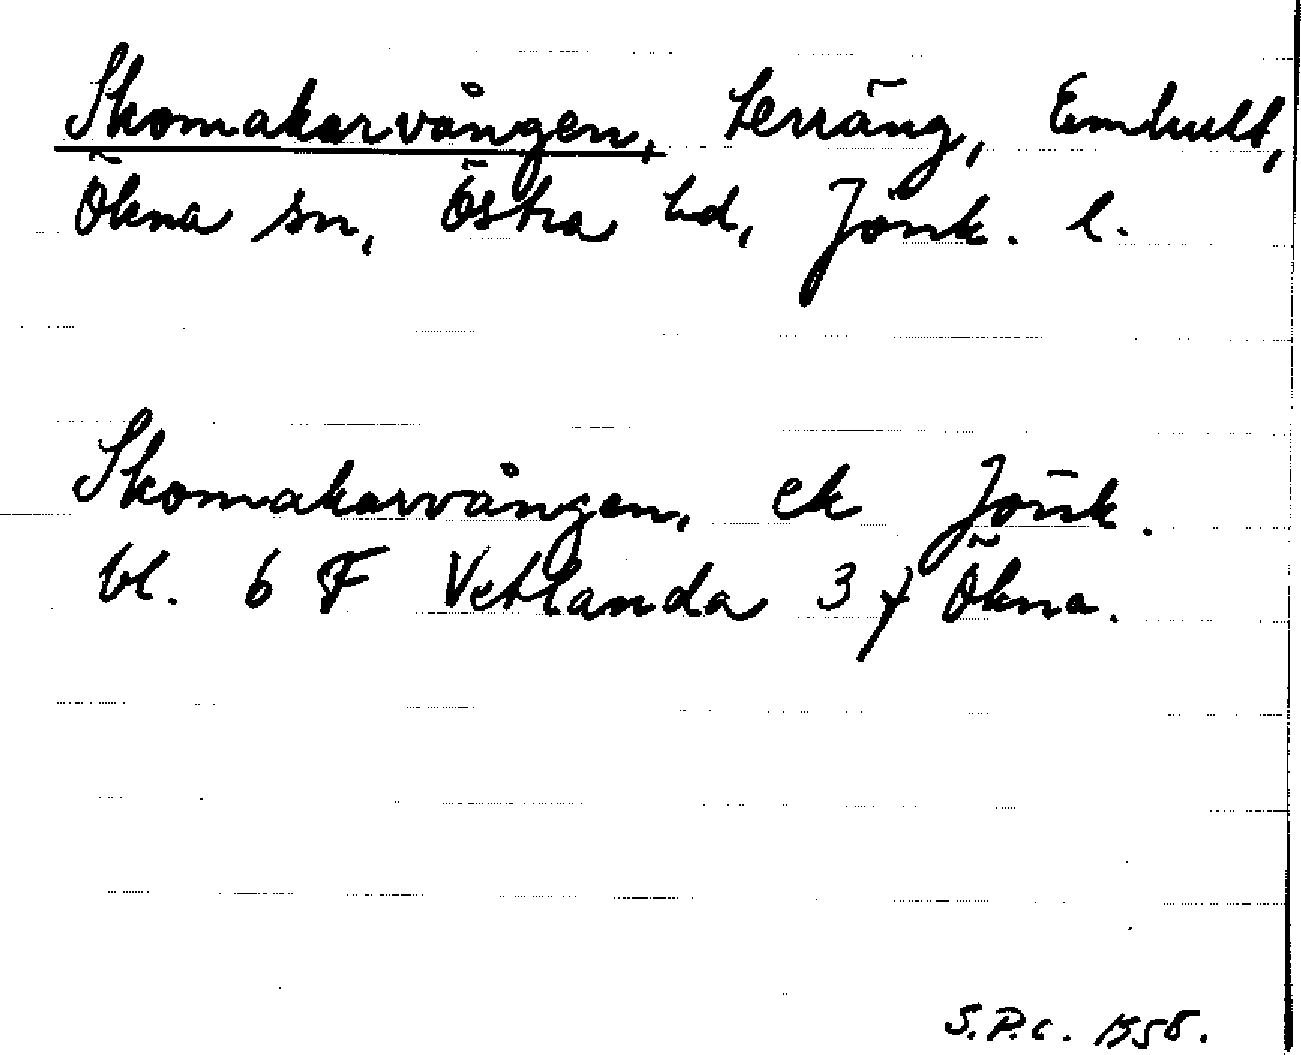 Skomakarvången, terräng, Emhult,
Ökna sn, Östra hd, Jönk. l.
Skomakarvången, ek Jönk.
bl. 6 F Vetlanda 3 f Ökna.
S.P.C. 1958.